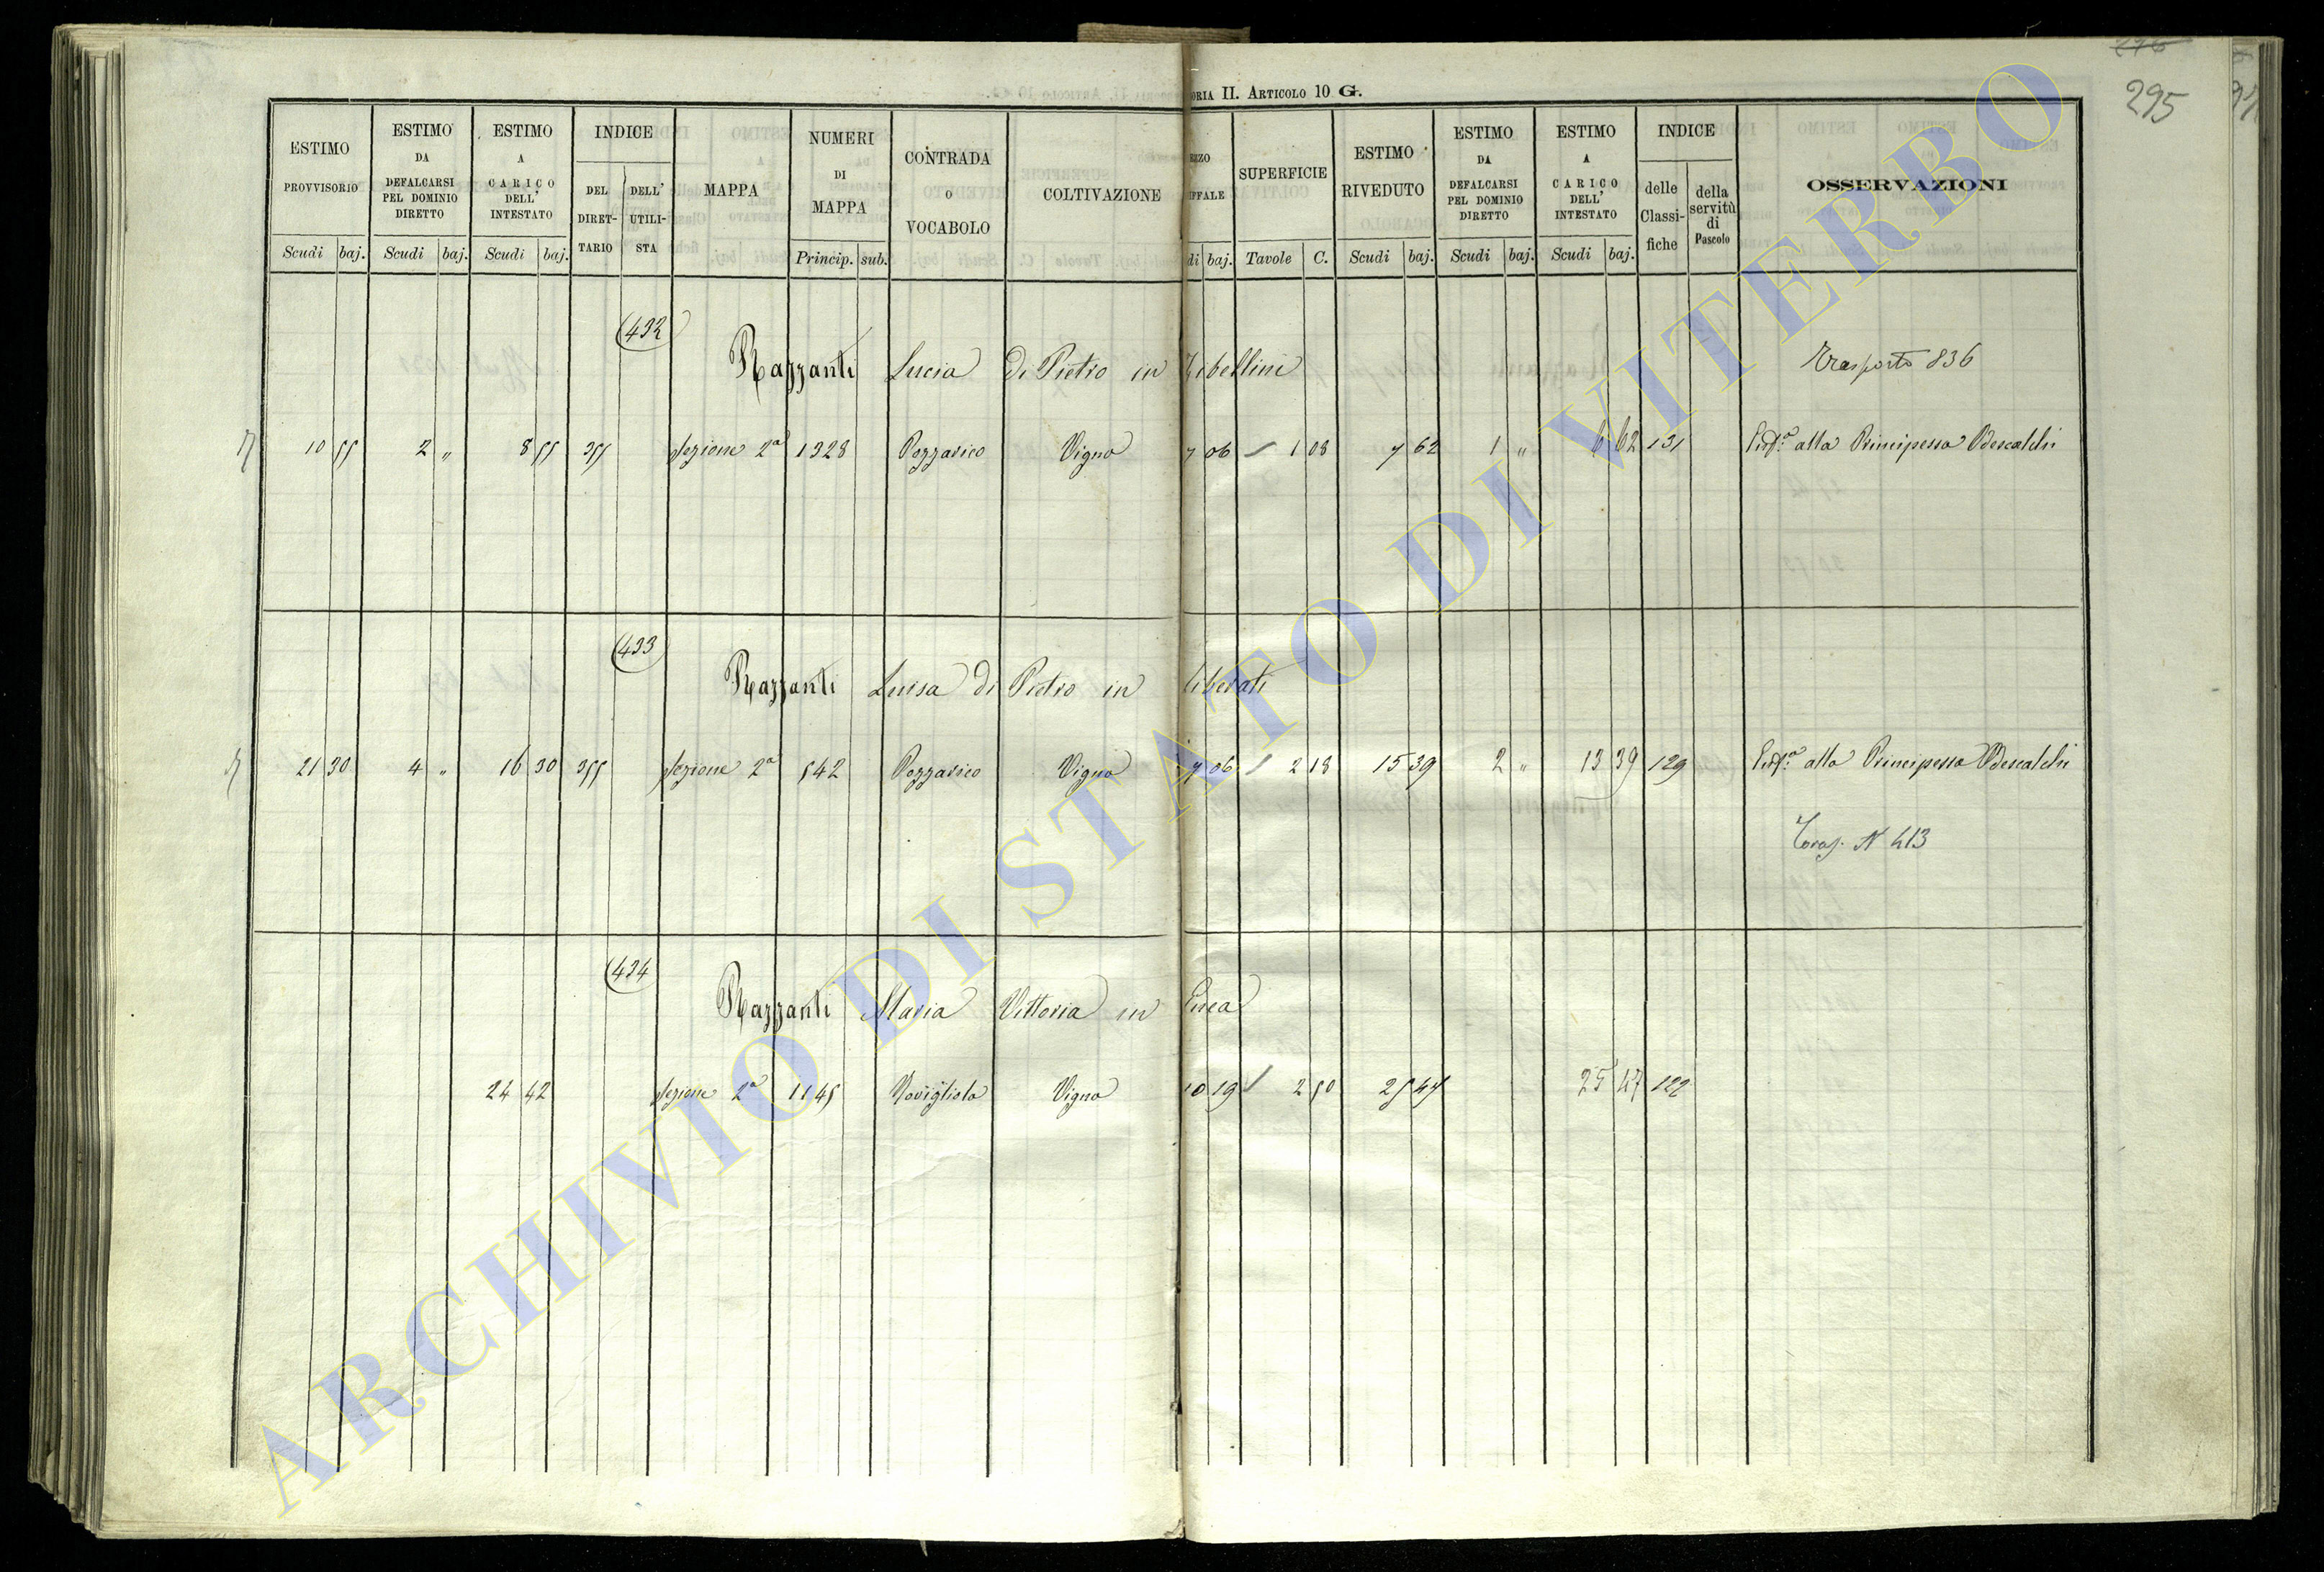 276
295
ORIA II. ARTICOLO 10 G.
ESTIMO PROVVISORIO
ESTIMO DA DEFALCARSI PEL DOMINIO DIRETTO
ESTIMO A CARICO DELL' INTESTATO
INDICE
DEL DIRET-TARIO
DELL' UTILI-STA
MAPPA
NUMERI DI MAPPA
CONTRADA O VOCABOLO
COLTIVAZIONE
EZZO IFFALE
SUPERFICIE
ESTIMO RIVEDUTO
ESTIMO DA DEFALCARSI PEL DOMINIO DIRETTO
ESTIMO A CARICO DELL' INTESTATO
INDICE
delle Classi-fiche
della servitù di Pascolo
OSSERVAZIONI
Scudi baj. Scudi baj. Scudi baj. Princip. sub. di baj. Tavole C. Scudi baj. Scudi baj. Scudi baj.
432
Razzanti Lucia di Pietro in Zibellini Trasporto 836
10 55 2 " 8 55 355 Sezione 2a 1328 Pozzarico Vigna 7 06 1 08 7 62 1 " 6 62 131 alla Principessa Odescalchi
433
Razzanti Luisa di Pietro in Liberati
21 30 4 " 16 30 355 Sezione 2a 542 Pozzarico Vigna 7 06 2 18 15 39 2 " 13 39 129 alla Principessa Odescalchi
N 413
434
Razzanti Maria Vittoria in
24 42 Sezione 2a 1145 Vigna 10 19 2 50 25 47 25 47 122
ARCHIVIO DI STATO DI VITERBO